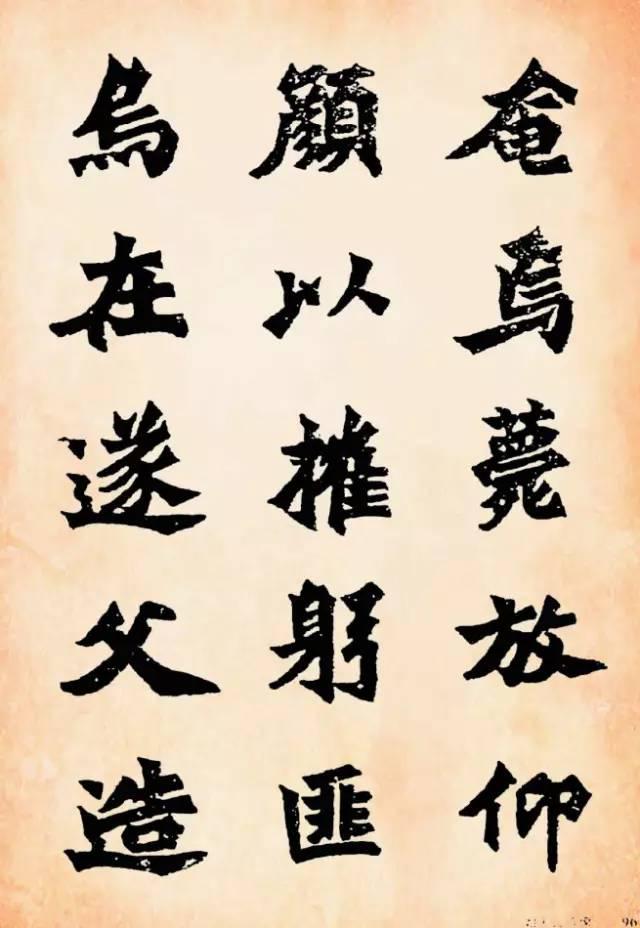 奄焉薨放仰
顏以摧躬匪
烏在遂父造
96